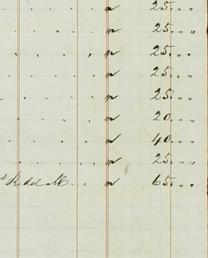 " 25. " "
" 25. " "
" 25. " "
" 25. " "
" 25. " "
" 20. " "
" 40. " "
" 25. " "
" 65. " "